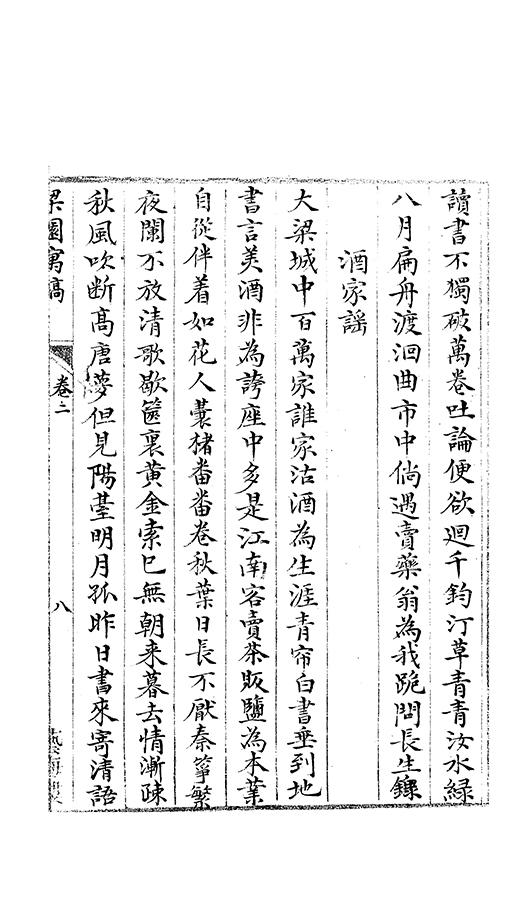 讀書不獨破萬卷吐論便欲迴千鈞汀草青青汝水緑
八月扁舟渡洄曲市中倘遇賣藥翁為我跪問長生籙
酒家謡
大梁城中百萬家誰家沽酒為生涯青帘白書垂到地
書言美酒非為誇座中多是江南客賣茶販鹽為本業
自從伴着如花人囊楮畨畨卷秋葉日長不厭秦箏繁
夜闌不放清歌歇篋裏黄金索已無朝来暮去情漸疎
秋風吹断髙唐夢但見陽臺明月孤昨日書來寄清語
梁園寓稿
卷二
八